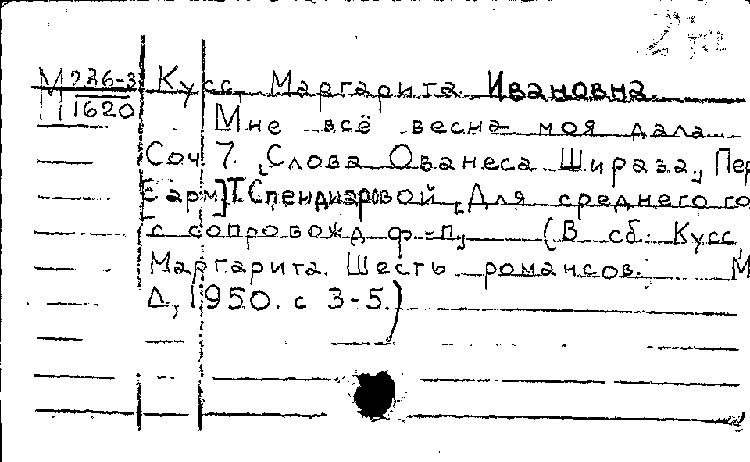 М 226-3 Кусс, Маргарита Ивановна.
1620 Мне всё весна моя дала...
Соч 7. [Слова Ованеса Шираза, Пер
с арм] Т. Спендиаровой, [Для среднего го
с сопровожд ф-п,] (В сб: Кусс,
Маргарита. Шесть романсов. М
Л, 1950. с 3-5.)